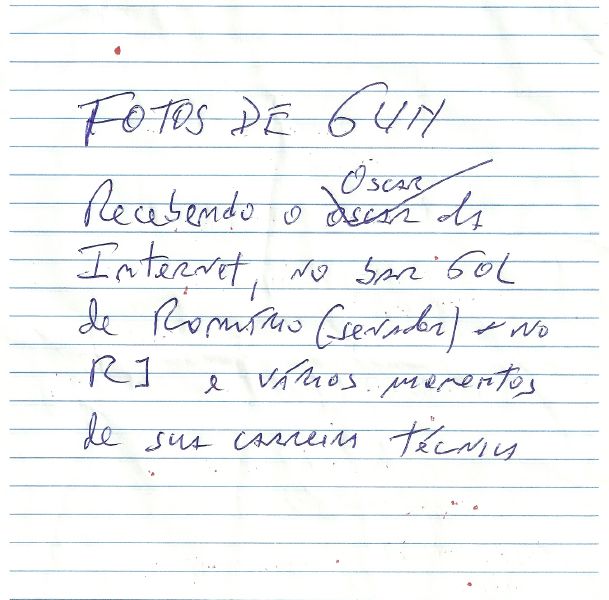 FOTOS DE GUM
Oscar
Recebendo o oscar da
Internet, no bar GOL
de Romário (senador) - no
RJ e vários momentos
de sua carreira técnica